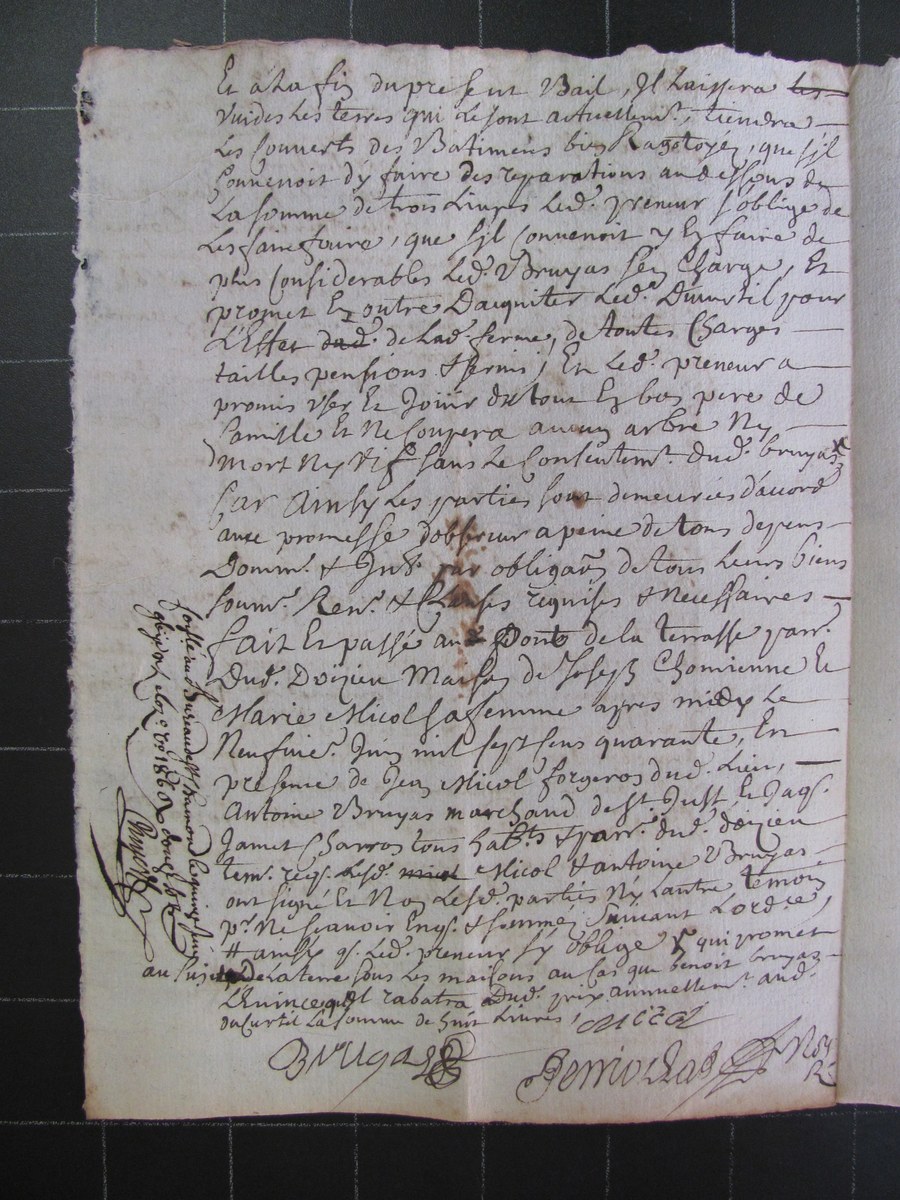 Et a La fin du present Bail, Il Laissera les
Vuides Les terres qui Le sont actuellemt, tiendra
Les Couverts des Batimens bien Ragotoyés, que s'jl
Convenoit d'y faire des reparations au dessous de
La somme de trois Livres Led. preneur s'oblige de
Les faire faire, que s'jl Convenoit y En faire de
plus Considerables Led. Bruyas s'en Charge, Et
promet En outre Daquiter Led. Ducurtil pour
L'Effet dud. de Lad. ferme, de toutes Charges
tailles pensions & servis, Et Led. preneur a
promis User Et Jouir du tout En bon pere de
famille Et Ne Coupera aucun arbre Ny
mort Ny Vif sans Le Consentemt. dud. bruyas
Car Ainsy Les parties sont demeurées d'accord
avec promesse d'observer a peine de tous depens
Domm. & Int. par obligaon de tous Leurs biens
soum. Ren. & Clauses requises & Necessaires
fait Et passé au Pont de la terrasse parr.
Dud. Doizieu Maison de Joseph Chomienne Et
Marie Nicol sa femme apres midy Le
Neufvie. Juin mil sept sens quarante, En
presence de Jean Nicol forgeron dud. Lieu,
Antoine Bruyas marchand de St. Just, Et Jaq.
Jamet Charron tous habts & parr. dud. doizieu
tem. req. Lesd. Nicol & antoine Bruyas
ont signé Et Non Lesd. parties Ny Lautre temoin
pr. Ne scavoir Enq. & somme suivant Lord.ce,
& ainsy q. Led. preneur s'y oblige x qui promet
de La terre sous Les maisons au Cas que benoit bruyas
L'Evince qu'il rabatra dud. prix annuellemt. aud.
ducurtil La somme de huit Livres, Nicol
Bruyas
Perrochas Nore
R.
Controllé au Bureau de St. Chamond Le quinze Juin
1740
au sujet